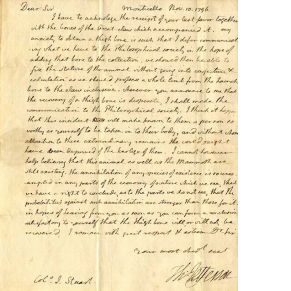 Dear Sir Monticello Nov. 10. 1796
I have to acknolege the receipt of your last favor together
with the bones of the Great claw which accompanied it. my
anxiety to obtain a thigh bone is such that I defer communicat
ing what we have to the Philosophical society in the hope of
adding that bone to the collection. we should then be able to
fix the stature of the animal without going into conjecture &
calculation as we should possess a whole limb from the haunch
bone to the claw inclusive. However you announce to me that
the recovery of a thigh bone is desperate, I shall make the
communication to the Philosophical society. I think it happy
that this incident will make known to them a person as
worthy as yourself to be taken in to their body, and without whose
attention to these extraordinary remains the world might
have been deprived of the knowlege of them. I cannot however
help believing that this animal as well as the Mammoth are
still existing. the annihilation of any species of existence is so unex
ampled in any parts of the economy of nature which we see, that
we have a right to conclude, as to the parts we do not see, that the
probabilities against such annihilation are stronger than those for it.
in hopes of hearing from you as soon as you can form a conclusion
satisfactory to yourself that the thigh bone will or will not be
recovered I remain with great respect & esteem Dr. Sir
Your most obedt. servt
Th: Jefferson
Colo. J. Stuart